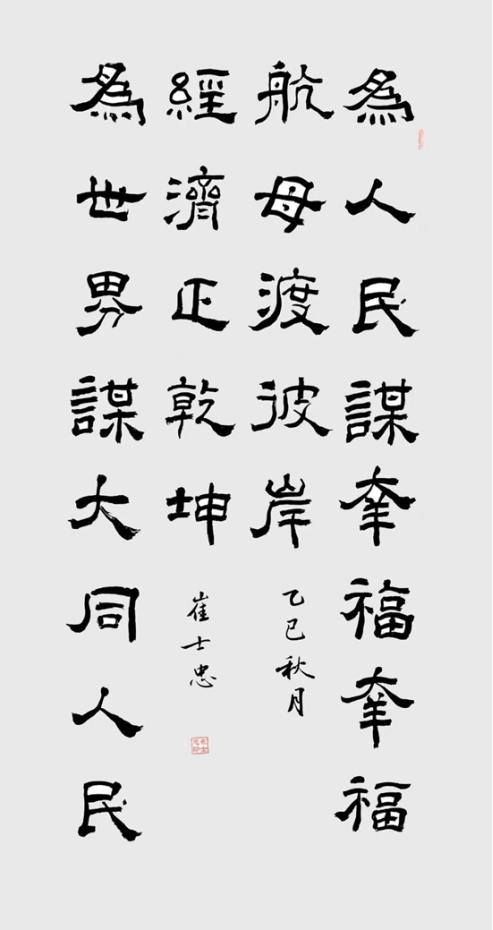 為人民謀幸福幸福
航母渡彼岸
乙巳秋月
經濟正乾坤
崔士忠
為世界謀大同人民